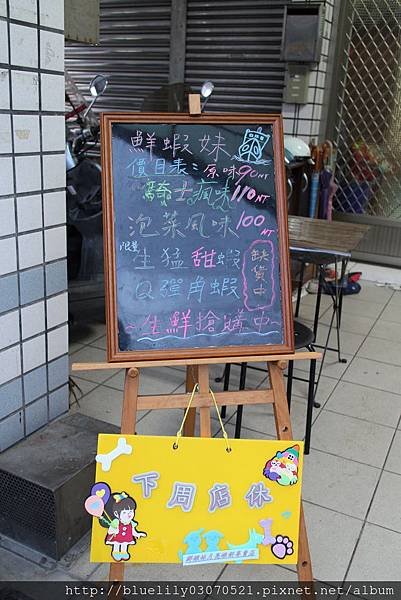 鮮蝦妹
價目表：原味90NT
騎士瘋味110NT
泡菜風味100NT
限量
生猛甜蝦
Q彈角蝦
缺貨中
~生鮮搶購中
下周店休
http://bluelily03070521.pixnet.net/album